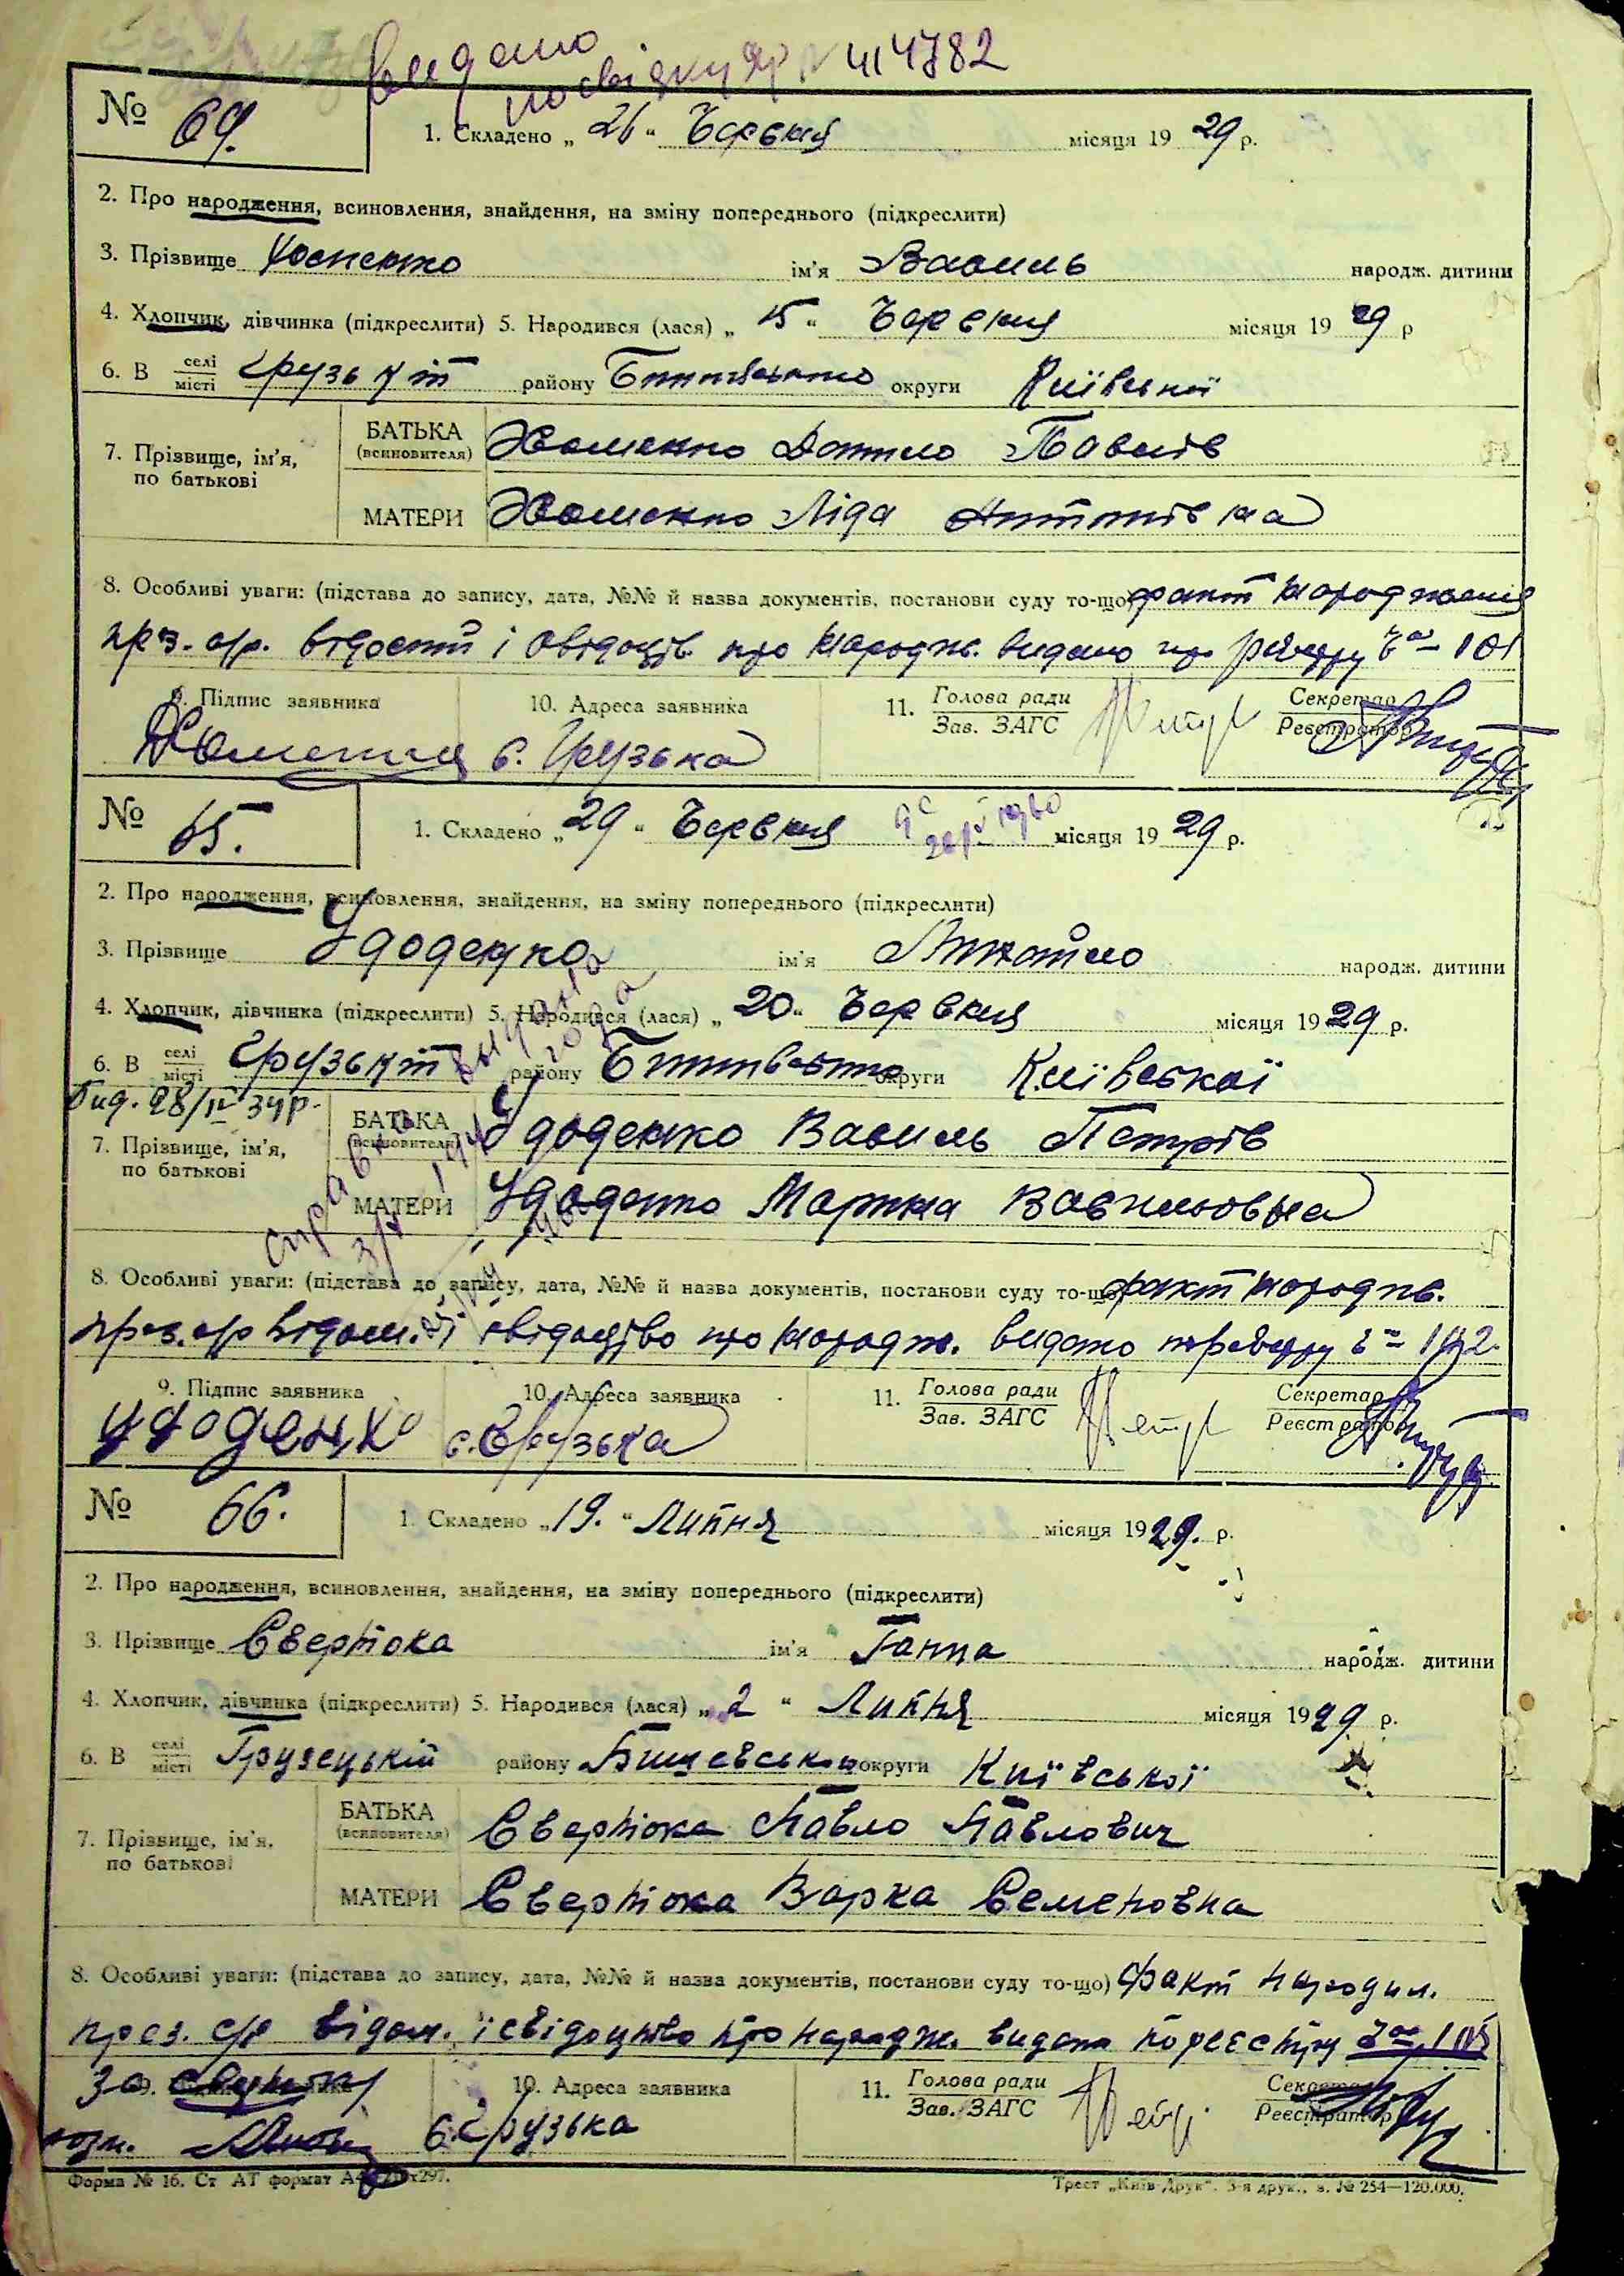 видано
посвідку ЯР № 414782
№ 64.
1. Складено „26“ Червня місяця 1929 р.
2. Про народження, всиновлення, знайдення, на зміну попереднього (підкреслити)
3. Прізвище Хоменко ім'я Василь народж. дитини
4. Хлопчик, дівчинка (підкреслити) 5. Народився (лася) „15“ Червня місяця 1929 р
6. В селі місті Грузькій району округи Київської
7. Прізвище, ім'я, по батькові
БАТЬКА (всиновителя) Хоменко Данило Павлів
МАТЕРИ Хоменко Ліда Антонівна
8. Особливі уваги: (підстава до запису, дата, №№ й назва документів, постанови суду то-що) факт народження
през. с/р. відомий і свідоцтв. про народж. видано по реєстру за № 101
9. Підпис заявника 10. Адреса заявника 11. Голова ради Зав. ЗАГС Секретар Реєстратор
Хоменко с. Грузька
№ 65.
1. Складено „29“ Червня місяця 1929 р.
2. Про народження, всиновлення, знайдення, на зміну попереднього (підкреслити)
3. Прізвище Удоденко ім'я Михайло народж. дитини
4. Хлопчик, дівчинка (підкреслити) 5. Народився (лася) „20“ Червня місяця 1929 р.
6. В селі місті Грузькій району округи Київської
Вид. 28/IV 34р.
7. Прізвище, ім'я, по батькові
БАТЬКА (всиновителя) Удоденко Василь Петрів
МАТЕРИ Удоденко Марина Василовна
8. Особливі уваги: (підстава до запису, дата, №№ й назва документів, постанови суду то-що) факт народж.
през. с/р відом. і свідоцтво про народж. видано по реєстру за № 102.
9. Підпис заявника 10. Адреса заявника 11. Голова ради Зав. ЗАГС Секретар Реєстратор
Удоденко с. Грузька
№ 66.
1. Складено „19.“ Липня місяця 1929. р.
2. Про народження, всиновлення, знайдення, на зміну попереднього (підкреслити)
3. Прізвище Свертока ім'я Ганна народж. дитини
4. Хлопчик, дівчинка (підкреслити) 5. Народився (лася) „2“ Липня місяця 1929 р.
6. В селі місті Грузецькій району Бишевського округи Київської
7. Прізвище, ім'я, по батькові
БАТЬКА (всиновителя) Свертока Павло Павлович
МАТЕРИ Свертока Варка Семеновна
8. Особливі уваги: (підстава до запису, дата, №№ й назва документів, постанови суду то-що) факт народж.
през. с/р відом. і свідоцтво про народж. видано по реєстру
10. Адреса заявника 11. Голова ради Зав. ЗАГС Секретар Реєстратор
с. Грузька
Форма № 16. Ст АТ формат
Трест „Київ-Друк“. 3-я друк., з. № 254—120.000.